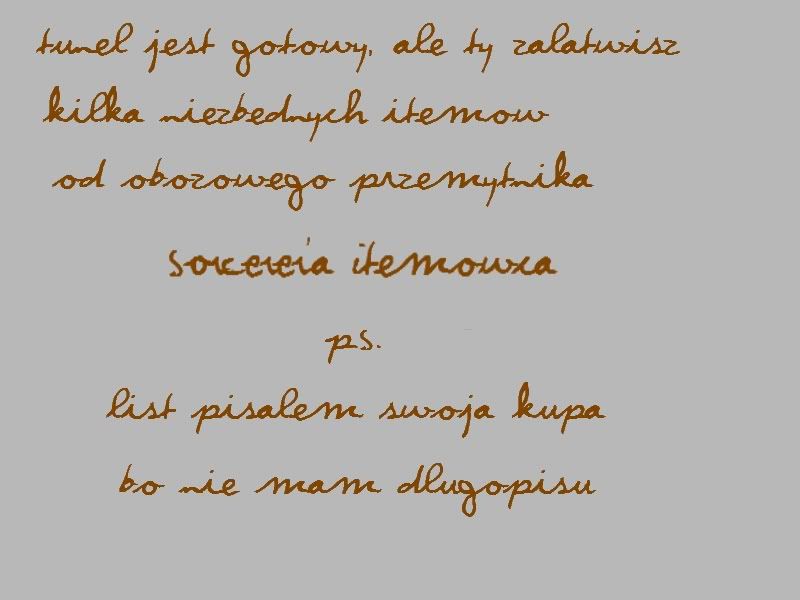 tunel jest gotowy, ale ty zalatwisz
kilka niezbednych itemow
od obozowego przemytnika
itemowza
ps.
list pisalem swoja kupa
bo nie mam dlugopisu